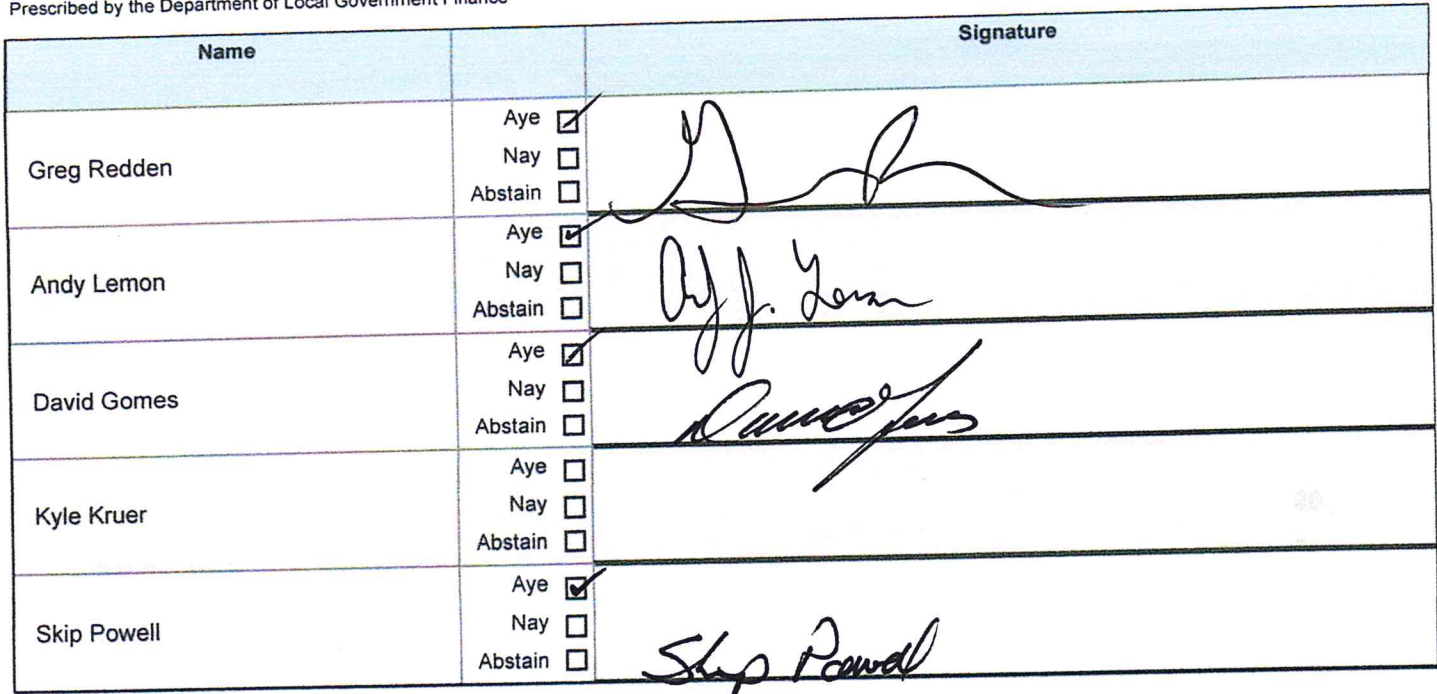 Prescribed by the Department of Local Government Finance
Name Signature
Aye
Greg Redden Nay
Abstain
Aye
Andy Lemon Nay
Abstain
Aye
David Gomes Nay
Abstain
Aye
Kyle Kruer Nay
Abstain
Aye
Skip Powell Nay
Abstain
Skip Powell